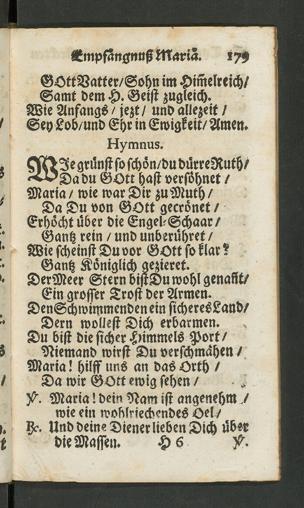 Empfängnuß Mariä. 179
GOtt Vatter / Sohn im Him̃elreich /
Samt dem H. Geist zugleich.
Wie Anfangs / jezt / und allezeit /
Sey Lob / und Ehr in Ewigkeit / Amen.
Hymnus.
WIe grünst so schön / du dürre Ruth /
Da du GOtt hast versöhnet /
Maria / wie war Dir zu Muth /
Da Du von GOtt gecrönet /
Erhöcht über die Engel-Schaar /
Gantz rein / und unberühret /
Wie scheinst Du vor GOtt so klar?
Gantz Königlich gezieret.
Der Meer Stern bist Du wohl genañt /
Ein grosser Trost der Armen.
Den Schwimmenden ein sicheres Land /
Dern wollest Dich erbarmen.
Du bist die sicher Himmels Port /
Niemand wirst Du verschmähen /
Maria! hilff uns an das Orth /
Da wir GOtt ewig sehen /
℣. Maria! dein Nam ist angenehm /
wie ein wohlriechendes Oel /
℟. Und deine Diener lieben Dich über
die Massen. H 6 ℣.